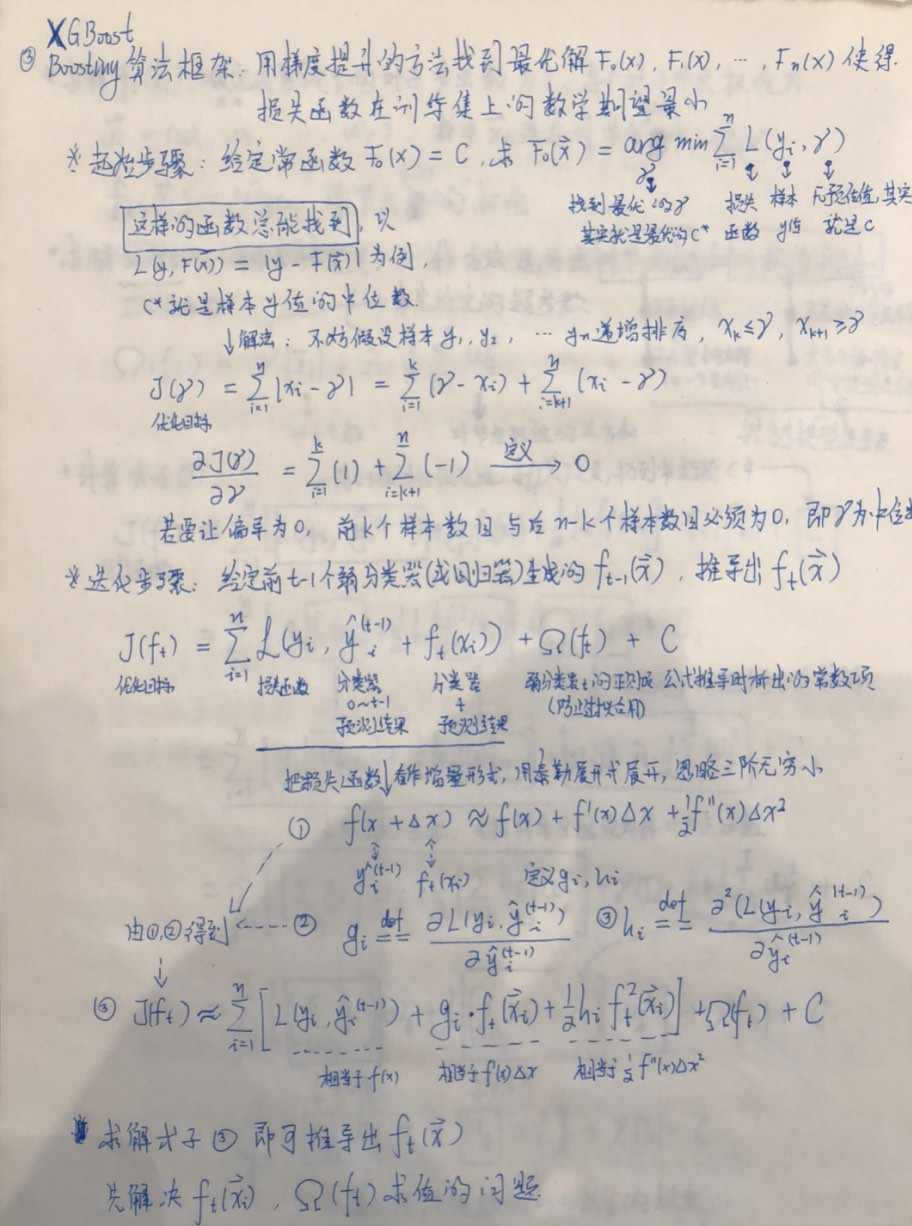 XGBoost
② Boosting算法框架: 用梯度提升的方法找到最优解 F₀(x), F₁(x), …, Fₙ(x) 使得
损失函数在训练集上的数学期望最小
* 起始步骤: 给定常函数 F₀(x) = C, 求 F₀(x⃗) = arg min_γ ∑_{i=1}^{n} L(yᵢ, γ)
找到最优的γ 损失 样本 F₀预估值, 其实
其实就是最优的C* 函数 y值 就是C
这样的函数总能找到, 以
L(y, F(x⃗)) = |y - F(x⃗)| 为例,
C*就是样本y值的中位数.
↓解法: 不妨假设样本 y₁, y₂, … yₙ 递增排序, x_k ≤ γ, x_{k+1} ≥ γ
J(γ) = ∑_{i=1}^{n} |xᵢ - γ| = ∑_{i=1}^{k} (γ - xᵢ) + ∑_{i=k+1}^{n} (xᵢ - γ)
优化目标
∂J(γ)/∂γ = ∑_{i=1}^{k} (1) + ∑_{i=k+1}^{n} (-1) —定义→ 0
若要让偏导为0, 前k个样本数目与后n-k个样本数目必须为0, 即γ为中位数
* 迭代步骤: 给定前t-1个弱分类器(或回归器)生成的 f_{t-1}(x⃗), 推导出 f_t(x⃗)
J(f_t) = ∑_{i=1}^{n} L(yᵢ, ŷᵢ^{(t-1)} + f_t(xᵢ)) + Ω(f_t) + C
优化目标 损失函数 分类器 分类器 弱分类器t的正则项 公式推导时析出的常数项
0~t-1 t (防止过拟合用)
预测结果 预测结果
把损失函数↓看作增量形式, 用泰勒展开式展开, 忽略三阶无穷小
① f(x + Δx) ≈ f(x) + f'(x)Δx + ½f''(x)Δx²
ŷᵢ^{(t-1)} f_t(xᵢ) 定义gᵢ, hᵢ
由①,②得到 ② gᵢ def== ∂L(yᵢ, ŷᵢ^{(t-1)})/∂ŷᵢ^{(t-1)} ③ hᵢ def== ∂²(L(yᵢ, ŷᵢ^{(t-1)})/∂ŷᵢ^{(t-1)}
③ J(f_t) ≈ ∑_{i=1}^{n} [L(yᵢ, ŷᵢ^{(t-1)}) + gᵢ·f_t(x⃗ᵢ) + ½hᵢ f_t²(x⃗ᵢ)] + Ω(f_t) + C
相当于f(x) 相当于f'(x)Δx 相当于½f''(x)Δx²
求解式子③即可推导出 f_t(x⃗)
先解决 f_t(x⃗ᵢ), Ω(f_t) 求值的问题